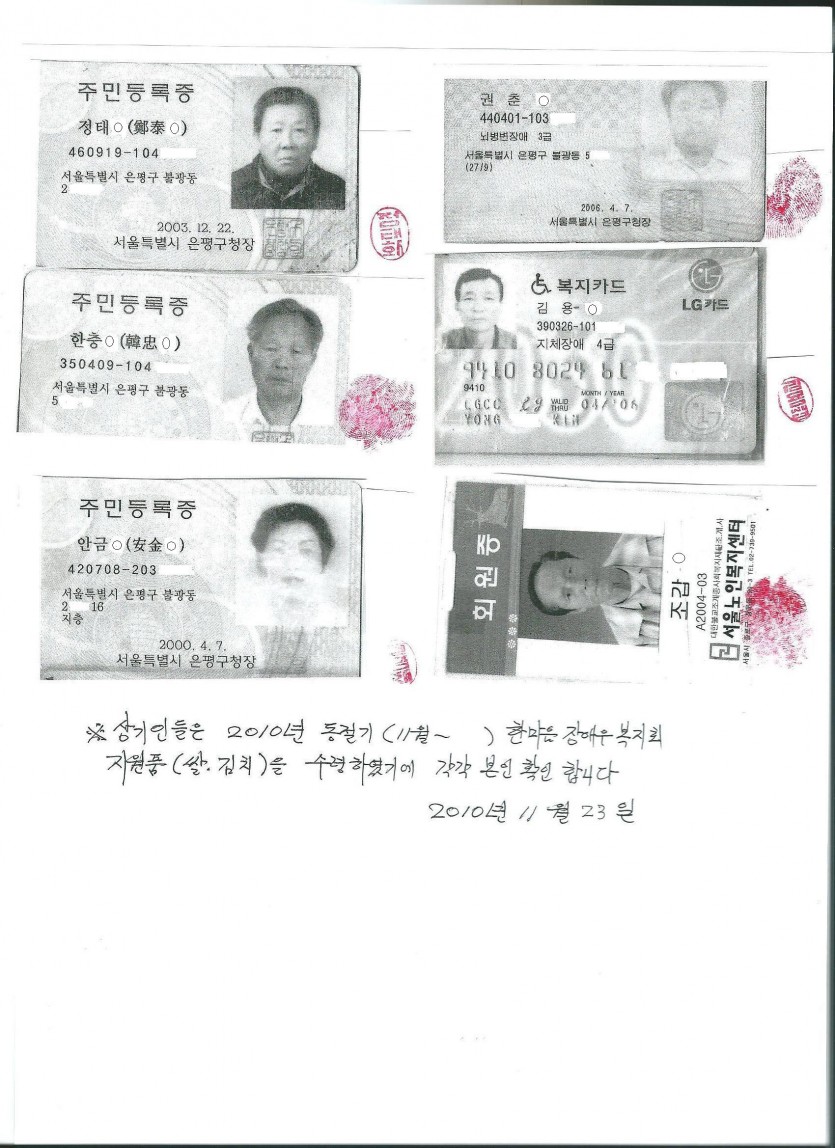 주민등록증
정태○(鄭泰○)
460919-104
서울특별시 은평구 불광동
2
2003. 12. 22.
서울특별시 은평구청장
권 춘 ○
440401-103
뇌병변장애 3급
서울특별시 은평구 불광동 5
(27/9)
2006. 4. 7.
서울특별시 은평구청장
주민등록증
한충○(韓忠○)
350409-104
서울특별시 은평구 불광동
5
복지카드
LG카드
김 용- ○
390326-101
지체장애 4급
9410 8024
9410
MONTH / YEAR
LGCC VALID THRU 04/'06
YONG KIM
주민등록증
안금○(安金○)
420708-203
서울특별시 은평구 불광동
2 16
지층
2000. 4. 7.
서울특별시 은평구청장
회원증
조갑 ○
A2004-03
서울노인복지센터
TEL.02-739-9501
※ 상기인들은 2010년 동절기 (11월~ ) 한마음 장애우복지회
지원품(쌀.김치)을 수령하였기에 각각 본인 확인 합니다
2010년 11월 23일